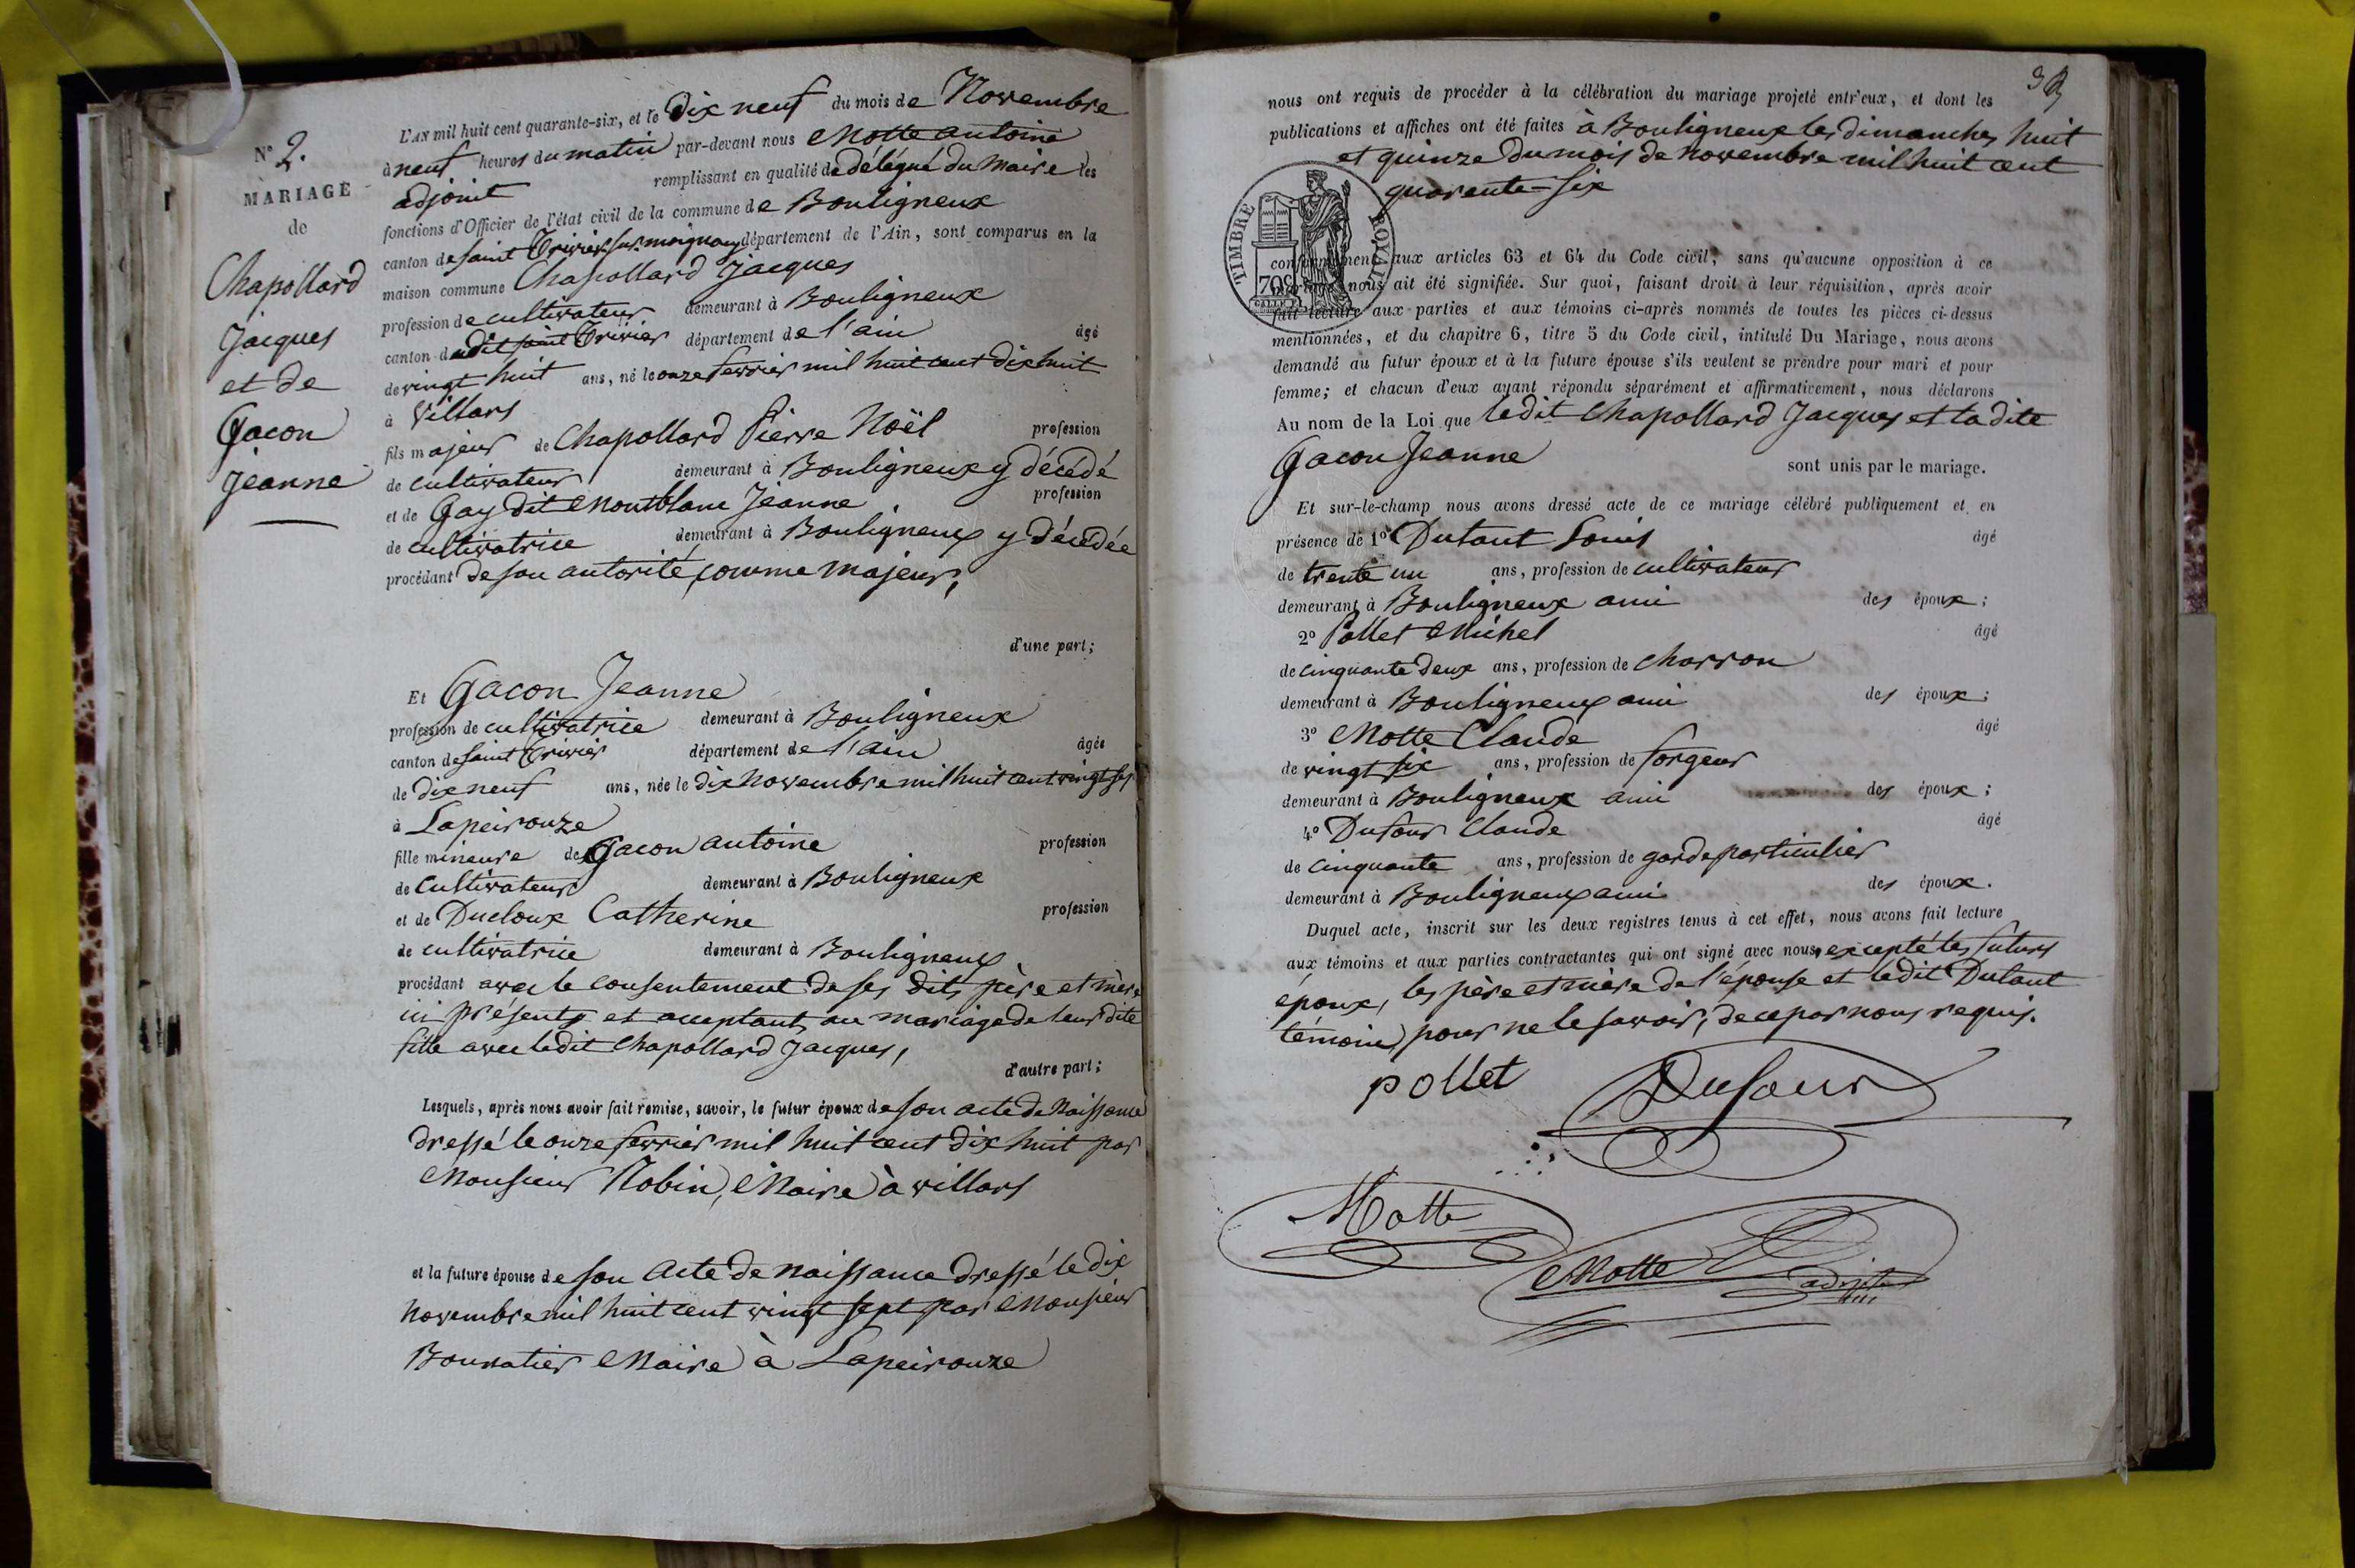 N° 2.
MARIAGE
de
Chapollard
Jacques
et de
Gacon
Jeanne
L'AN mil huit cent quarante-six, et le Dix neuf du mois de Novembre
à neuf heures du matin par-devant nous Motte antoine
adjoint remplissant en qualité de délégué du Maire les
fonctions d'Officier de l'état civil de la commune de Bouligneux
canton de saint Trivier sur moignans département de l'Ain, sont comparus en la
maison commune Chapollard Jacques
profession de cultivateur demeurant à Bouligneux
canton dudit saint Trivier département de l'ain âgé
de vingt huit ans, né le onze fevrier mil huit cent dix huit
à Villars
fils majeur de Chapollard Pierre Noël profession
de cultivateur demeurant à Bouligneux y décédé
et de Gay dit Montblanc Jeanne profession
de cultivatrice demeurant à Bouligneux y décédée
procédant de son autorité, comme majeur,
d'une part;
Et Gacon Jeanne
profession de cultivatrice demeurant à Bouligneux
canton de saint Trivier département de l'ain âgée
de dix neuf ans, née le dix novembre mil huit cent vingt sept
à Lapeirouze
fille mineure de Gacon antoine profession
de cultivateur demeurant à Bouligneux
et de Ducloux Catherine profession
de cultivatrice demeurant à Bouligneux
procédant avec le consentement de ses dits père et mère
ici présents et acceptant au mariage de leur dite
fille avec ledit Chapollard Jacques,
d'autre part;
Lesquels, après nous avoir fait remise, savoir, le futur époux de son acte de Naissance
dressé le onze fevrier mil huit cent dix huit par
Monsieur Robin, Maire à villars
et la future épouse de son acte de naissance dressé le dix
novembre mil huit cent vingt sept par Monsieur
Bournatier Maire à Lapeirouze
nous ont requis de procéder à la célébration du mariage projeté entr'eux, et dont les
publications et affiches ont été faites à Bouligneux les dimanches huit
et quinze du mois de novembre mil huit cent
quarante-six
TIMBRE ROYAL
70c
conformément aux articles 63 et 64 du Code civil, sans qu'aucune opposition à ce
mariage nous ait été signifiée. Sur quoi, faisant droit à leur réquisition, après avoir
fait lecture aux parties et aux témoins ci-après nommés de toutes les pièces ci-dessus
mentionnées, et du chapitre 6, titre 5 du Code civil, intitulé Du Mariage, nous avons
demandé au futur époux et à la future épouse s'ils veulent se prendre pour mari et pour
femme; et chacun d'eux ayant répondu séparément et affirmativement, nous déclarons
Au nom de la Loi que ledit Chapollard Jacques et ladite
Gacon Jeanne sont unis par le mariage.
Et sur-le-champ nous avons dressé acte de ce mariage célébré publiquement et en
présence de 1° Dutant Louis âgé
de trente un ans, profession de cultivateur
demeurant à Bouligneux ami des époux;
2° Pollet Michel âgé
de cinquante deux ans, profession de charron
demeurant à Bouligneux ami des époux;
3° Motte Claude âgé
de vingt six ans, profession de forgeur
demeurant à Bouligneux ami des époux;
4° Dufour Claude âgé
de cinquante ans, profession de garde particulier
demeurant à Bouligneux ami des époux.
Duquel acte, inscrit sur les deux registres tenus à cet effet, nous avons fait lecture
aux témoins et aux parties contractantes qui ont signé avec nous, excepté les futurs
époux, les père et mère de l'épouse et ledit Dutant
témoin, pour ne le savoir, de ce par nous requis.
pollet
Dufour
Motte
Motte adjoint